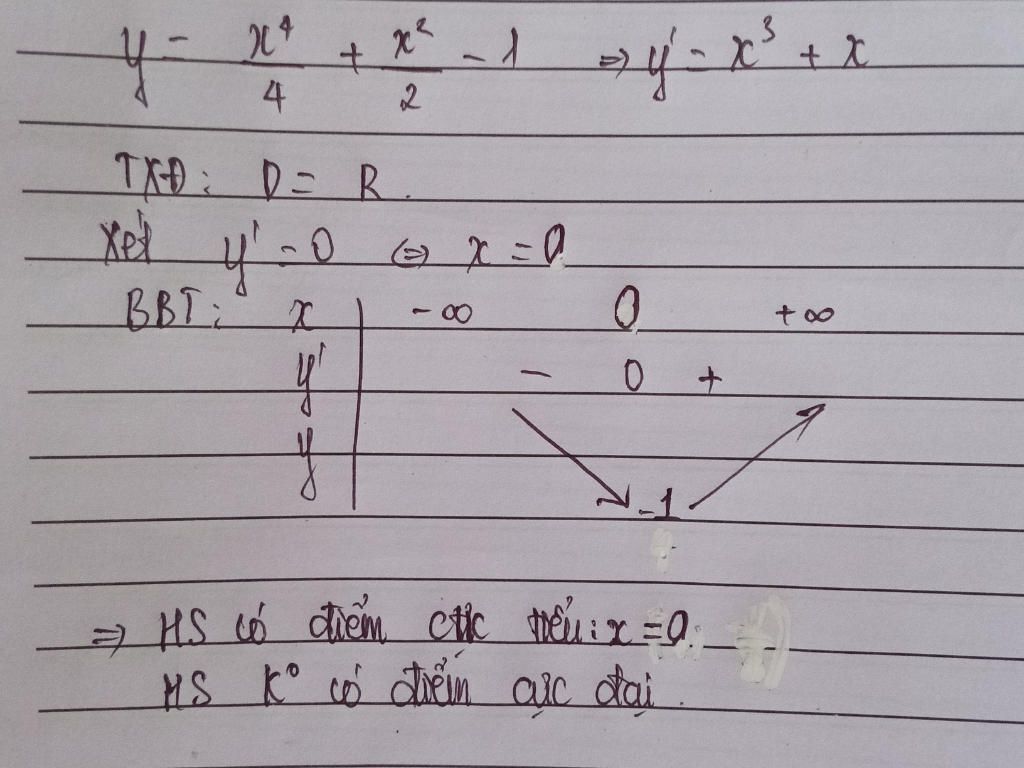 y = x⁴/4 + x²/2 - 1 ⇒ y' = x³ + x
TXĐ: D = R.
Xét y' = 0 ⇔ x = 0
BBT: x | -∞ 0 +∞
y' | - 0 +
y | ↘ -1 ↗
⇒ HS có điểm cực tiểu: x = 0.
HS K° có điểm cực đại.